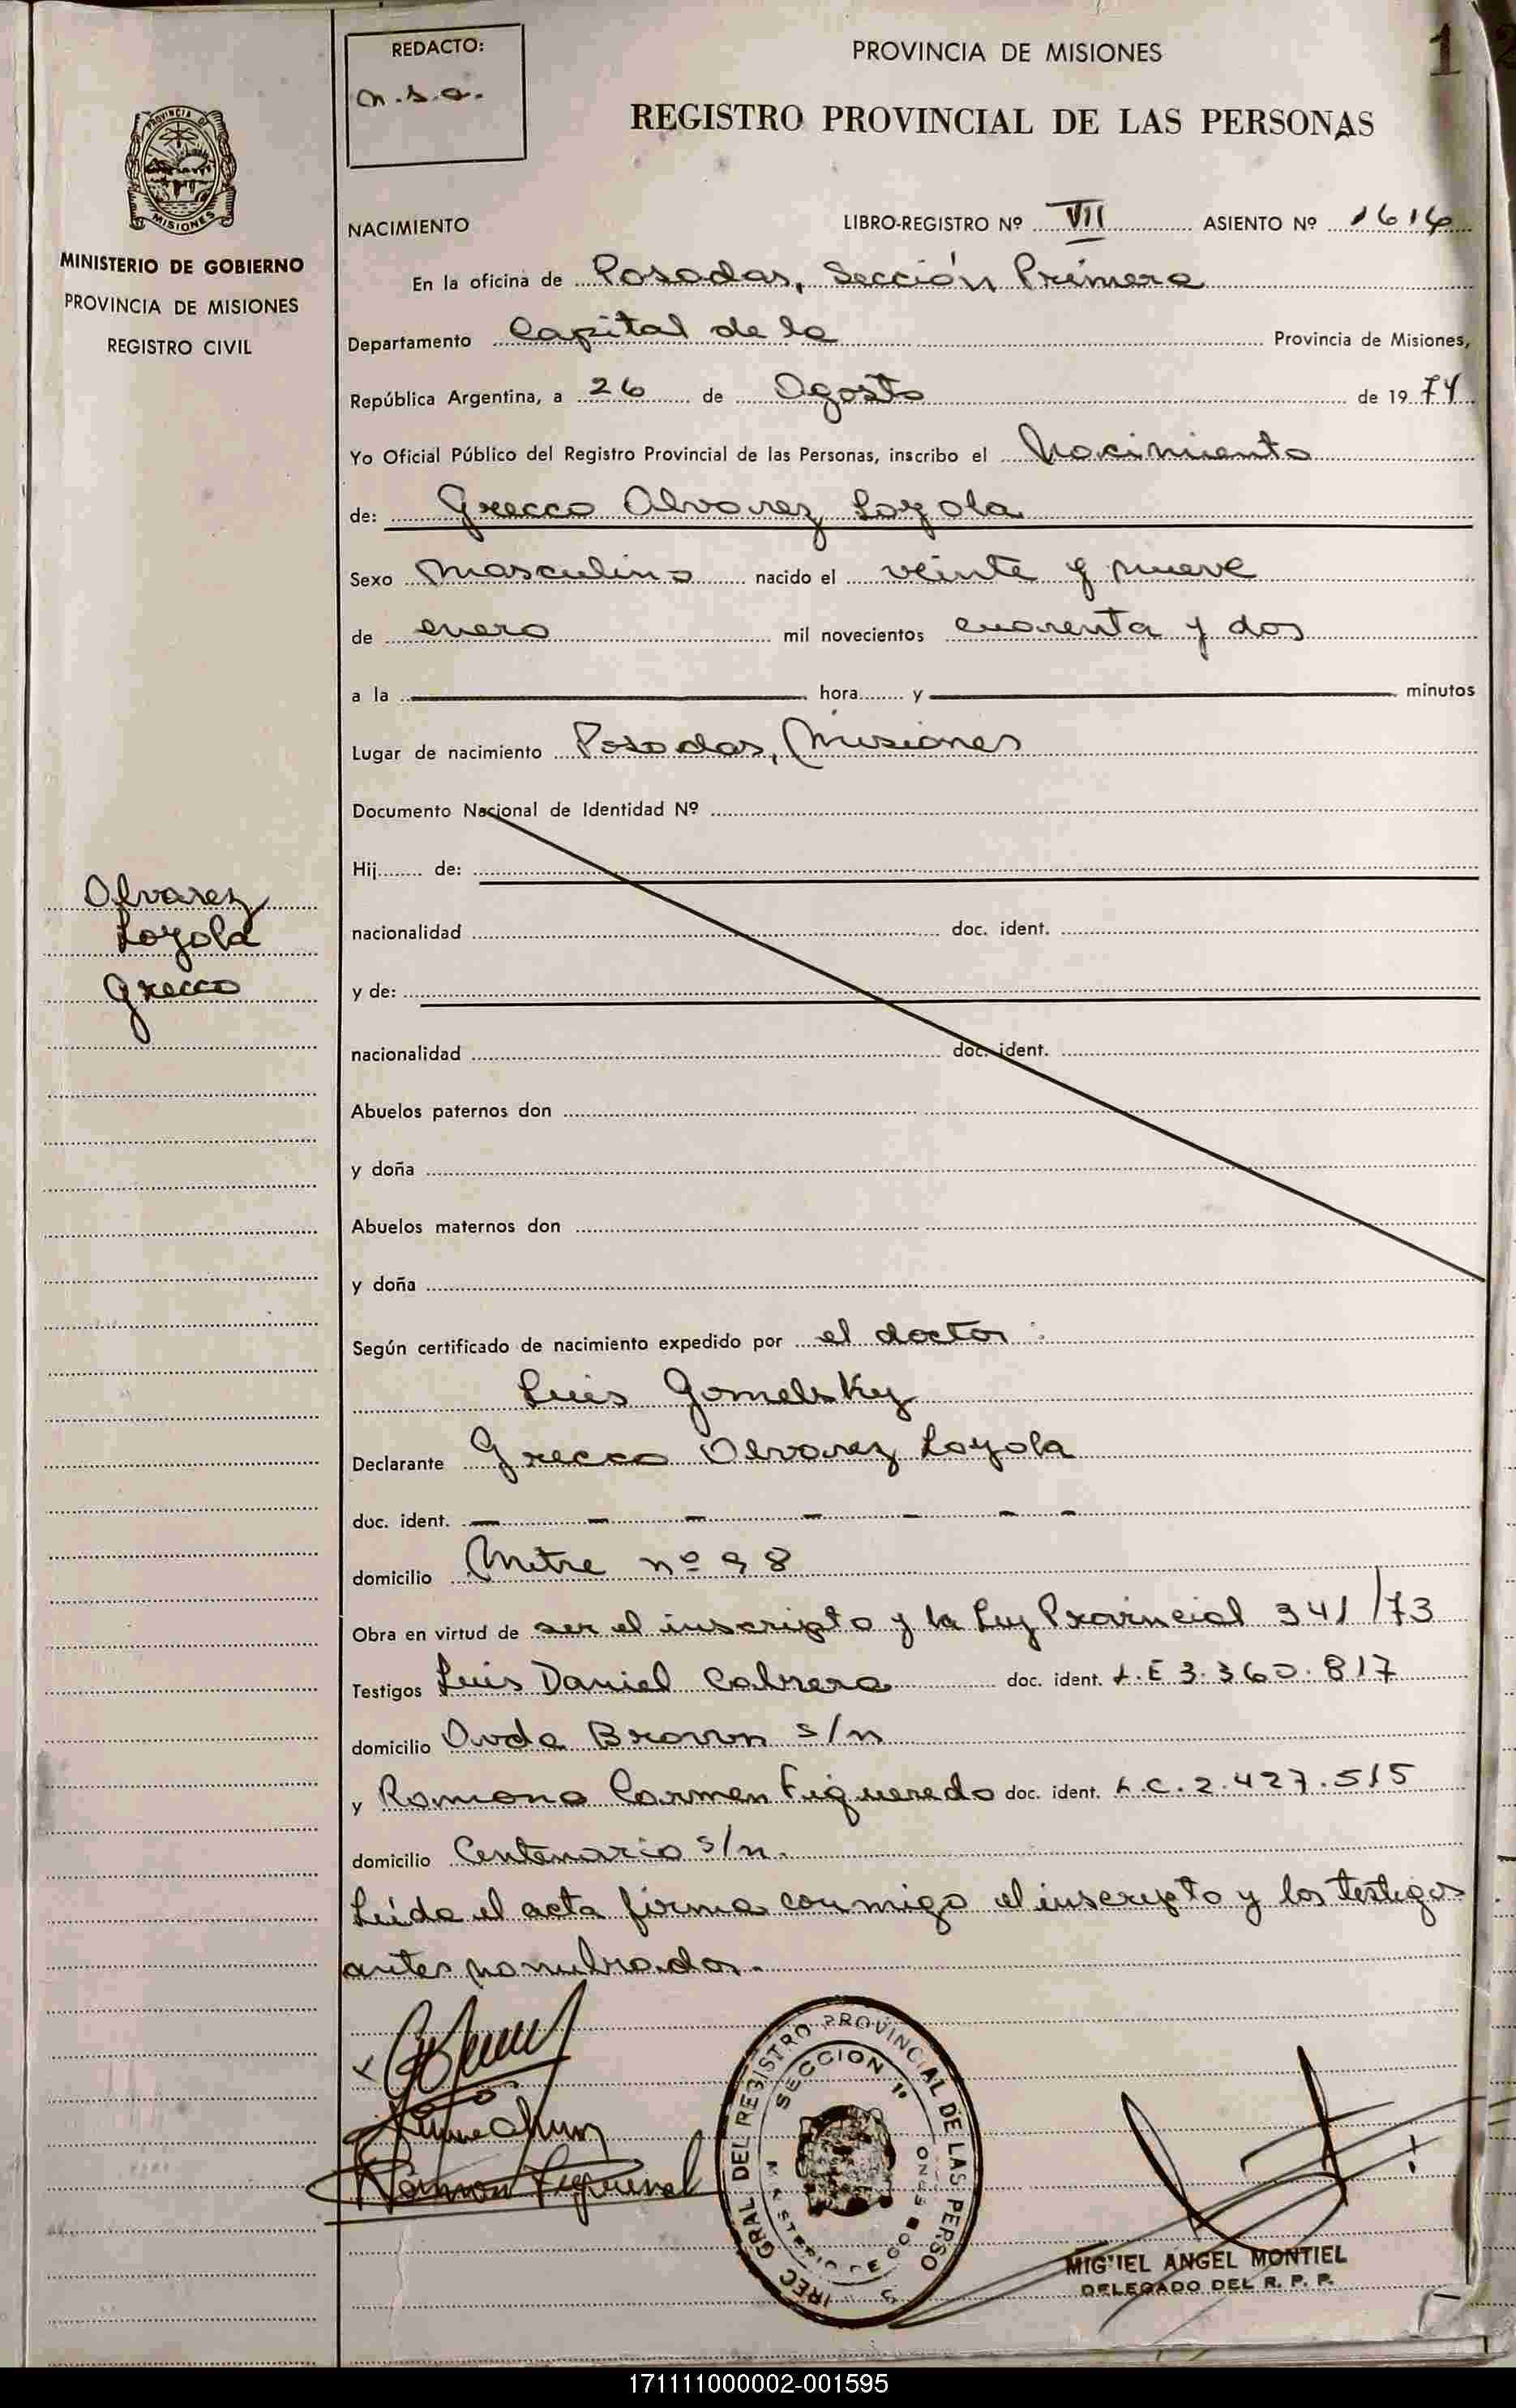 REDACTO:
m.s.a.
PROVINCIA DE MISIONES
REGISTRO PROVINCIAL DE LAS PERSONAS
1
PROVINCIA DE
MISIONES
MINISTERIO DE GOBIERNO
PROVINCIA DE MISIONES
REGISTRO CIVIL
NACIMIENTO LIBRO-REGISTRO Nº VII ASIENTO Nº 1614
En la oficina de Posadas, Sección Primera
Departamento Capital de la Provincia de Misiones,
República Argentina, a 26 de Agosto de 1974
Yo Oficial Público del Registro Provincial de las Personas, inscribo el Nacimiento
de: Grecco Alvarez Loyola
Sexo masculino nacido el veinte y nueve
de enero mil novecientos cuarenta y dos
a la hora y minutos
Lugar de nacimiento Posadas, Misiones
Documento Nacional de Identidad Nº
Hij de:
Alvarez
Loyola
Grecco
nacionalidad doc. ident.
y de:
nacionalidad doc. ident.
Abuelos paternos don
y doña
Abuelos maternos don
y doña
Según certificado de nacimiento expedido por el doctor:
Luis Gomelsky
Declarante Grecco Alvarez Loyola
doc. ident. — — — — — — —
domicilio Mitre nº 98
Obra en virtud de ser el inscripto y la Ley Provincial 341/73
Testigos Luis Daniel Cabrera doc. ident. L.E 3.360.817
domicilio Avda Brown s/n
y Ramona Carmen Figueredo doc. ident. L.C. 2.427.515
domicilio Centenario s/n.
Leída el acta firma conmigo el inscripto y los testigos
antes nombrados.
GRAL DEL REGISTRO PROVINCIAL DE LAS PERSO
SECCION 1ª
MIG'IEL ANGEL MONTIEL
DELEGADO DEL R. P. P.
171111000002-001595